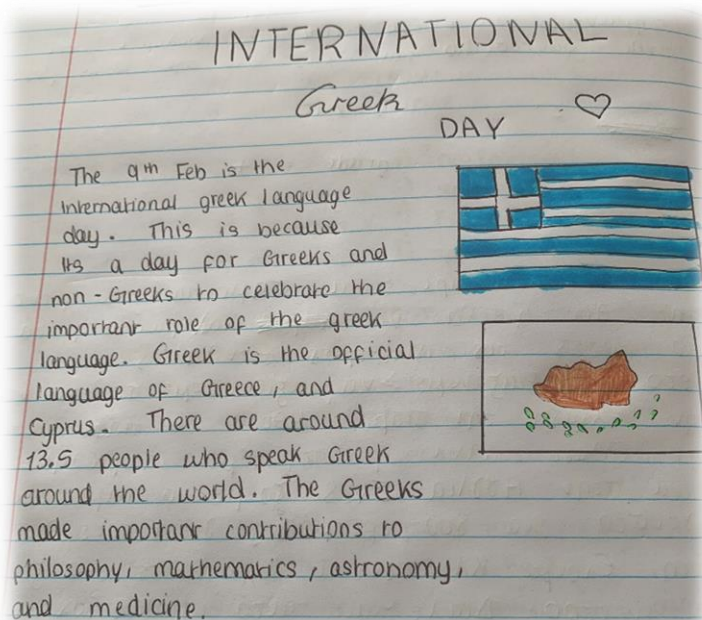 INTERNATIONAL
Greek
DAY
The 9th Feb is the
international greek language
day. This is because
its a day for Greeks and
non-Greeks to celebrate the
important role of the greek
language. Greek is the official
language of Greece, and
Cyprus. There are around
13.5 people who speak Greek
around the world. The Greeks
made important contributions to
philosophy, mathematics, astronomy,
and medicine.